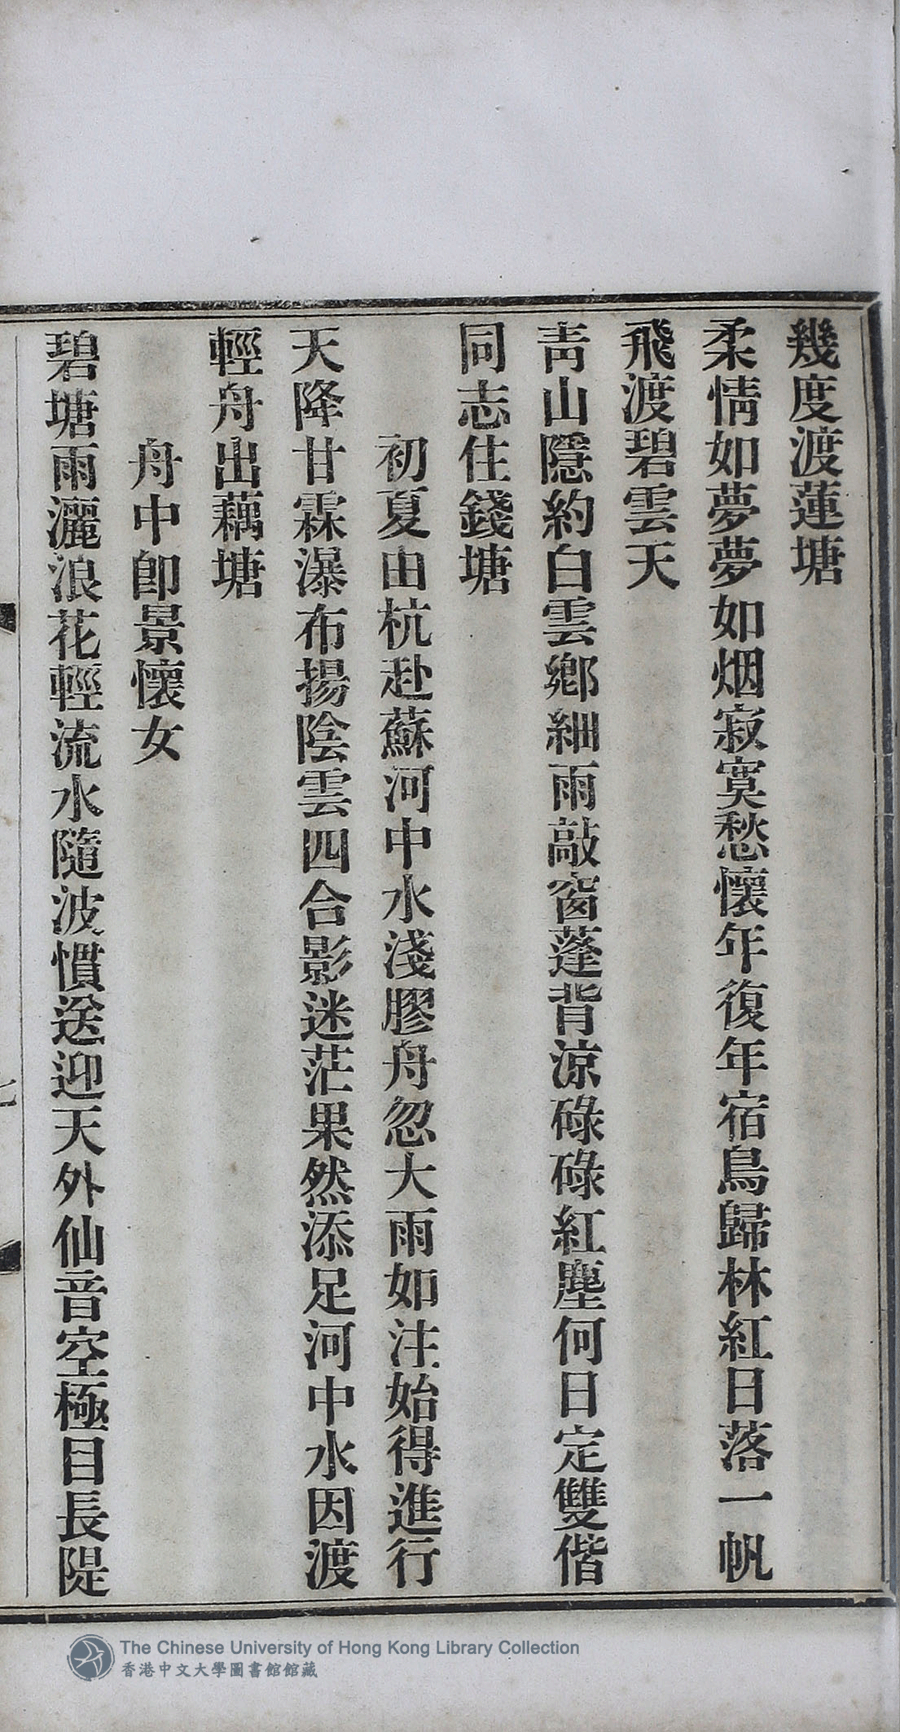 幾度渡蓮塘
柔情如夢夢如烟寂寞愁懷年復年宿鳥歸林紅日落一帆
飛渡碧雲天
靑山隱約白雲鄉細雨敲窗蓬背涼碌碌紅塵何日定雙偕
同志住錢塘
初夏由杭赴蘇河中水淺膠舟忽大雨如注始得進行
天降甘霖瀑布揚陰雲四合影迷茫果然添足河中水因渡
輕舟出藕塘
舟中卽景懷女
碧塘雨灑浪花輕流水隨波慣送迎天外仙音空極目長隄
The Chinese University of Hong Kong Library Collection
香港中文大學圖書館館藏